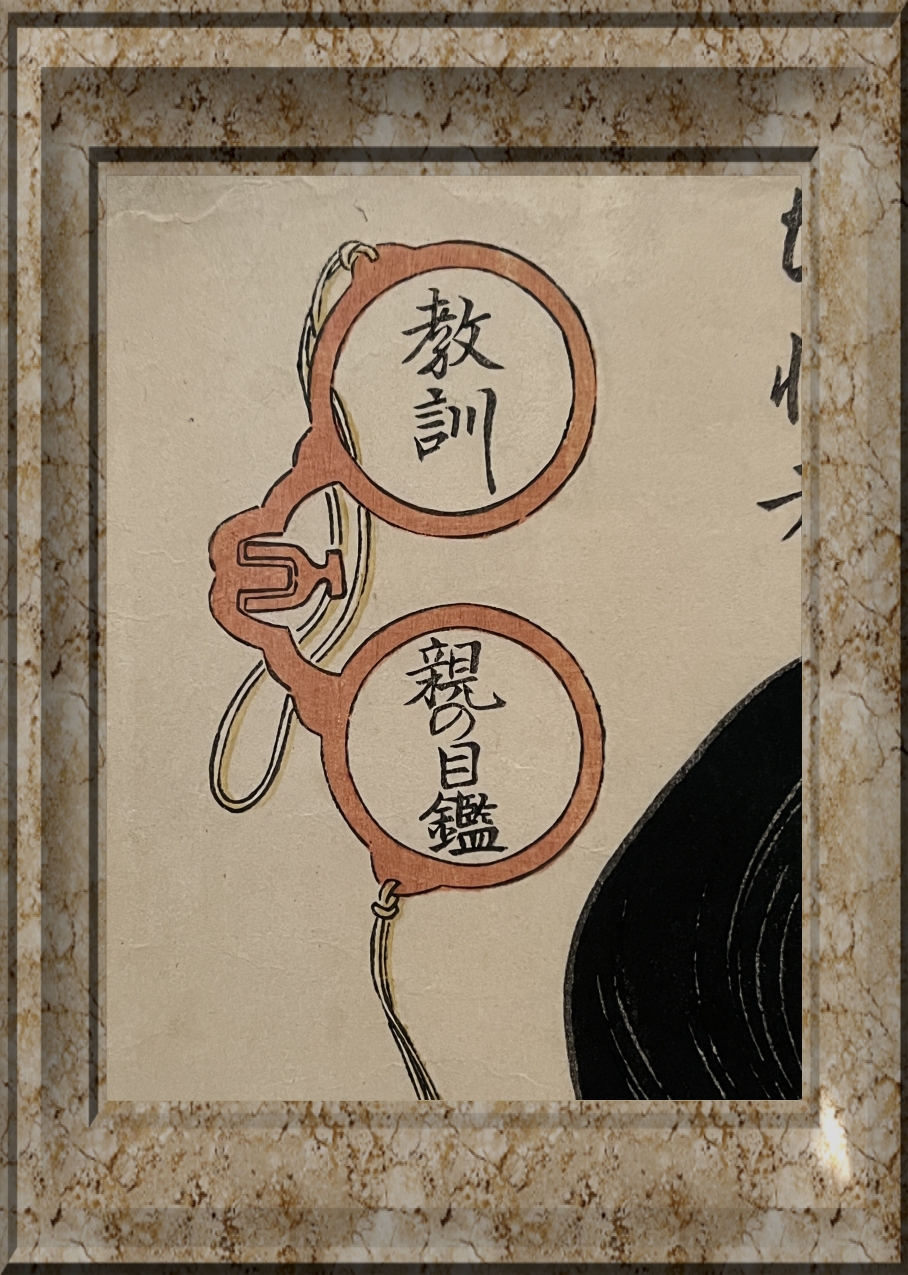 教訓
親の目鑑